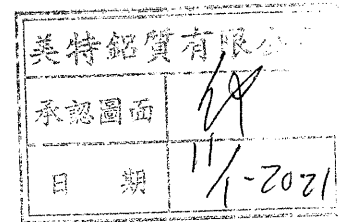 美特鋁質有限公
承認圖面
日 期 11/1-2021